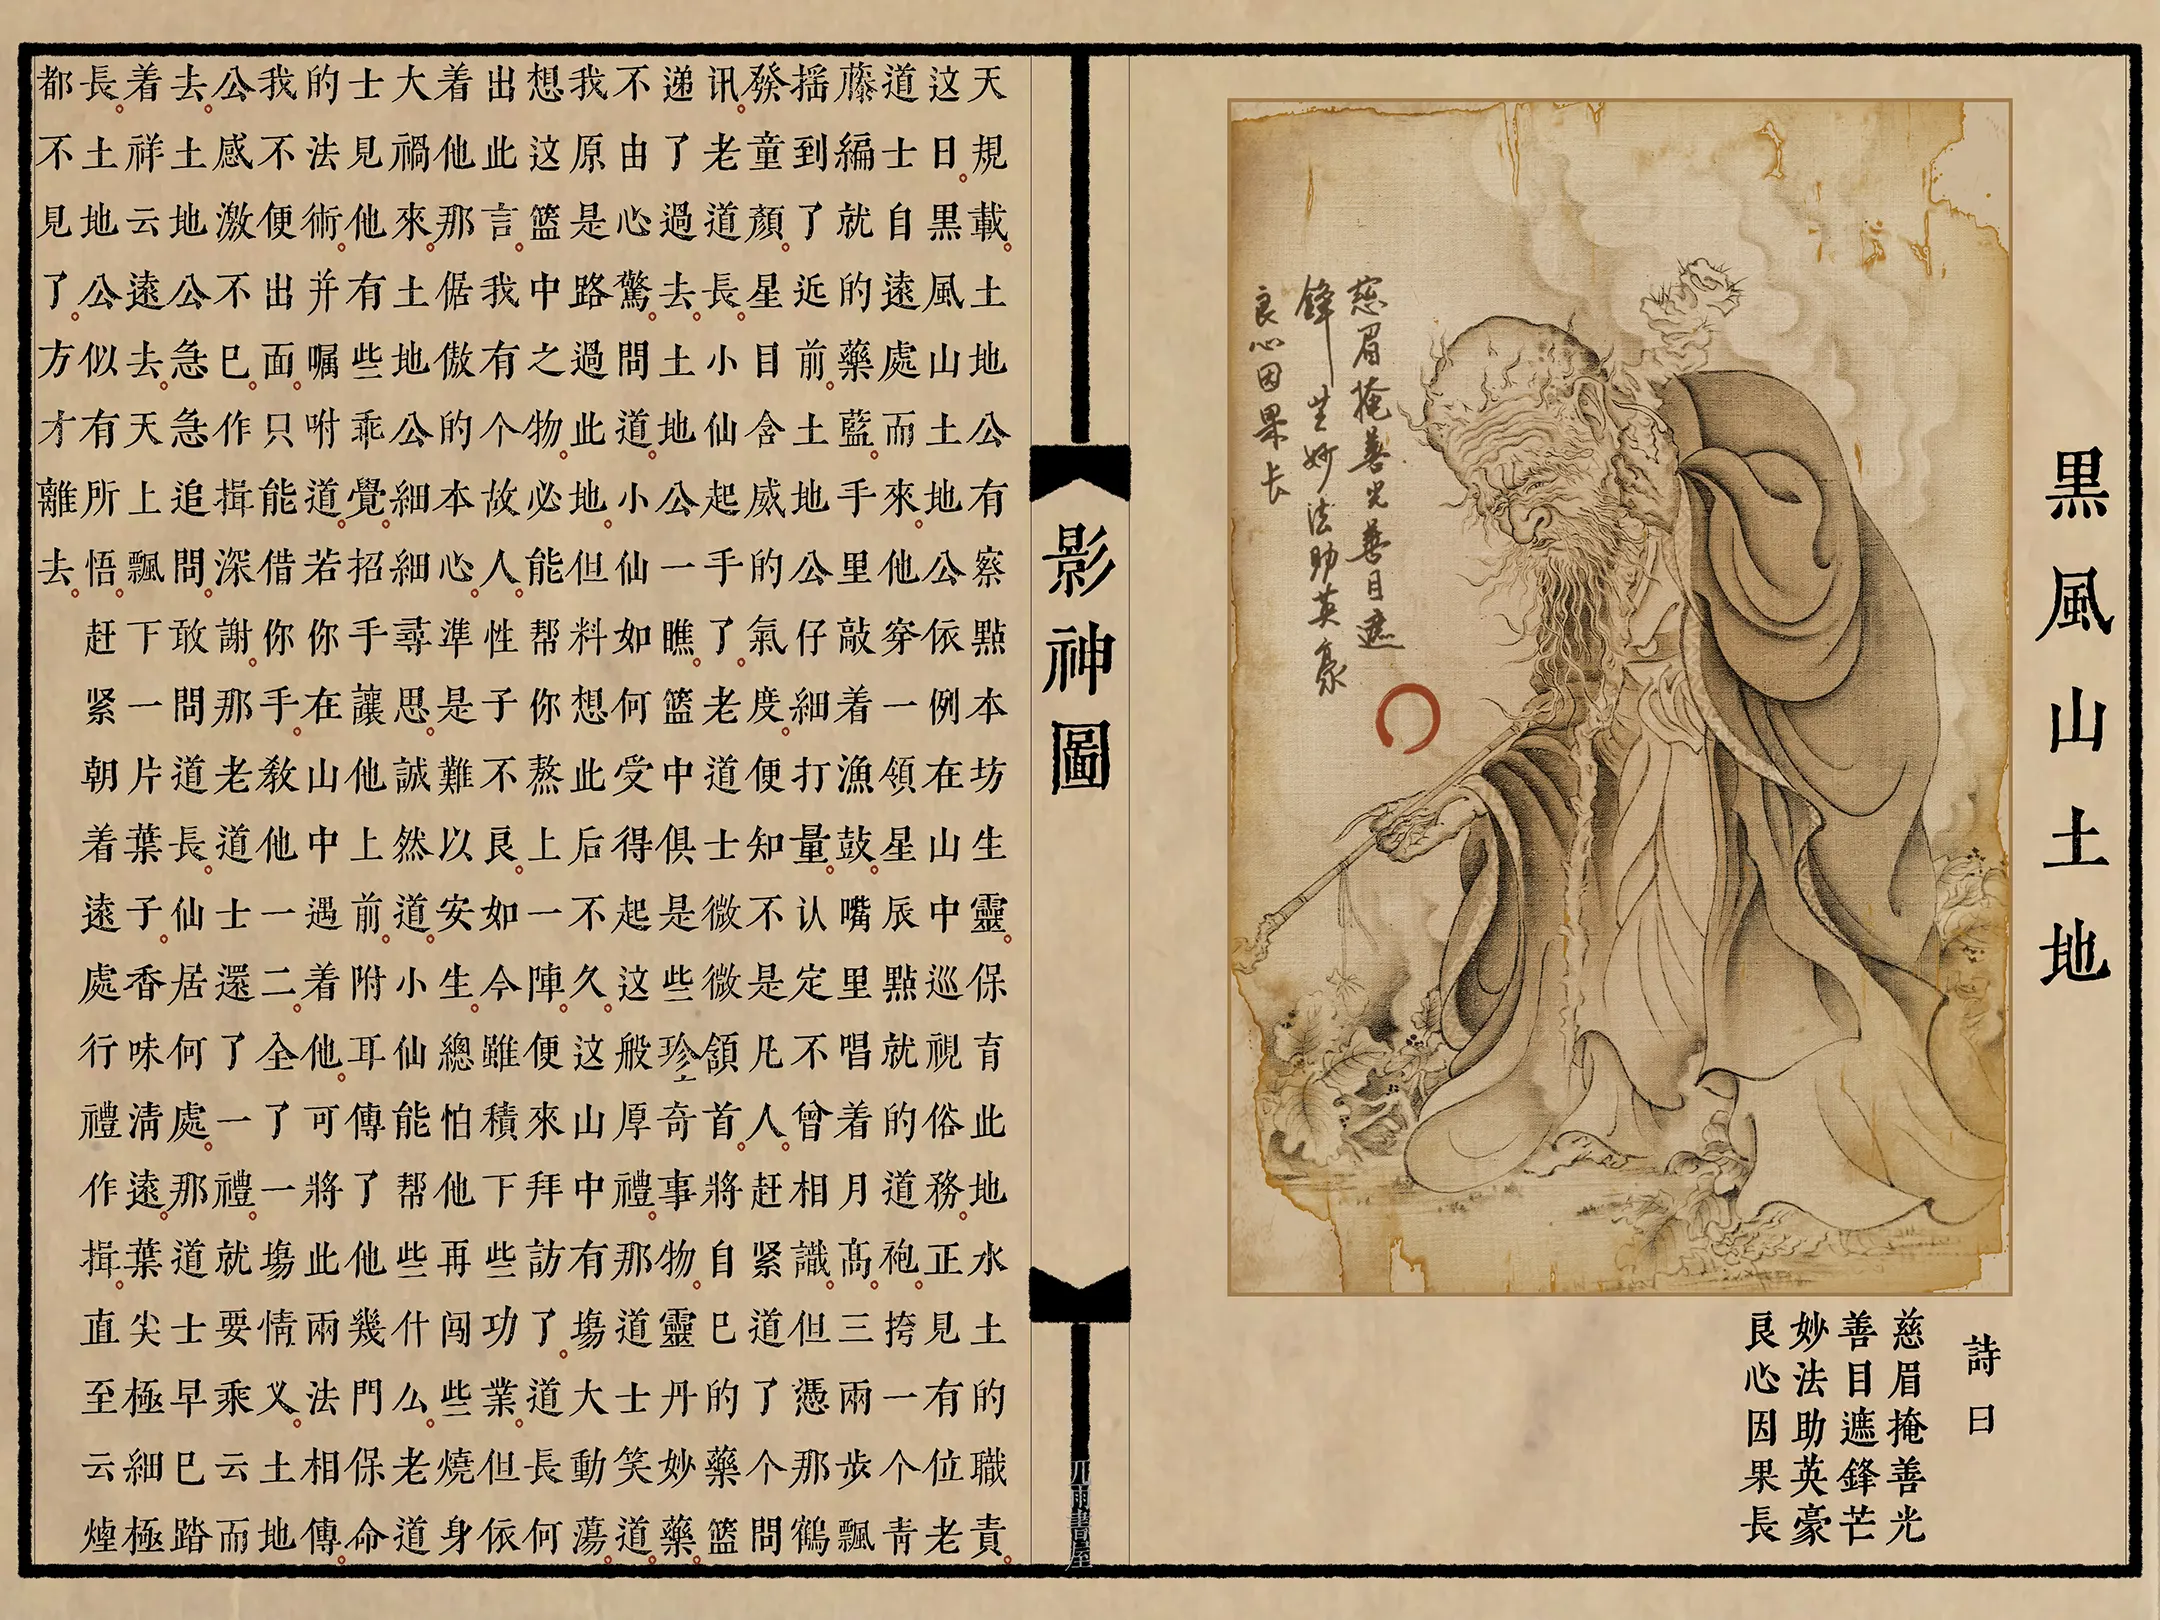 黒風山土地
慈眉掩善光善目遮
鋒芒妙法助英豪
良心因果长
詩曰
慈眉掩善光
善目遮鋒芒
妙法助英豪
良心因果長
影神圖
天規載。土地公有察點本坊生靈。保育此地水土的職責。
这日。黒風山土地公依例在山中巡視俗務。正見有位老
道士自遠處而來。他穿一領星辰點就的道袍。挎一个青
藤編就的藥藍。手里敲着漁鼓。嘴里唱着月高。三兩步飄
揺到了近前。土地公仔細打量。认定不曾相識。但憑那鶴
發童顏。星目含威的氣度。便知不是凡人。赶緊道了个問
讯。老道長。小仙起手了。老道士微微頷首。將自已的藥籃
递了過去。土地公一瞧。籃中俱是些珍奇事物。靈丹妙藥。
不由心驚。問道。小仙如何受得起这般厚禮。那道士笑道。
我原是路過此地。但料想此后不久。这山中有塲大動蕩。
想这籃中之物。必能帮你熬上一陣。便來拜訪了。道長何
出此言。我有个故人。性子不良。如今雖積下些功業。但依
着他那倨傲的本心。準是難以安生。總怕他再闯些燒身
大禍來。土地公細細尋思。誠然道。小仙能帮些什么。老道
士見他有些乖覺。招手讓他上前。附耳傳了他幾門保命
的法術。并嘱咐道。若你在山中遇着他。可將此兩法相傳。
我不便出面。只能借你手。教他一二。全了一塲情义。土地
公感激不已。作揖深謝。那老道士還了一禮。就要乘云而
去。土地公急急追問。敢問道長。仙居何處。那道士早已踏
着祥云遠去。天上飄。下一片葉子。香味清遠。葉尖極細極
長。土地公。似有所悟。赶紧朝着遠處行禮作揖。直至云煙
都不見了。方才離去。